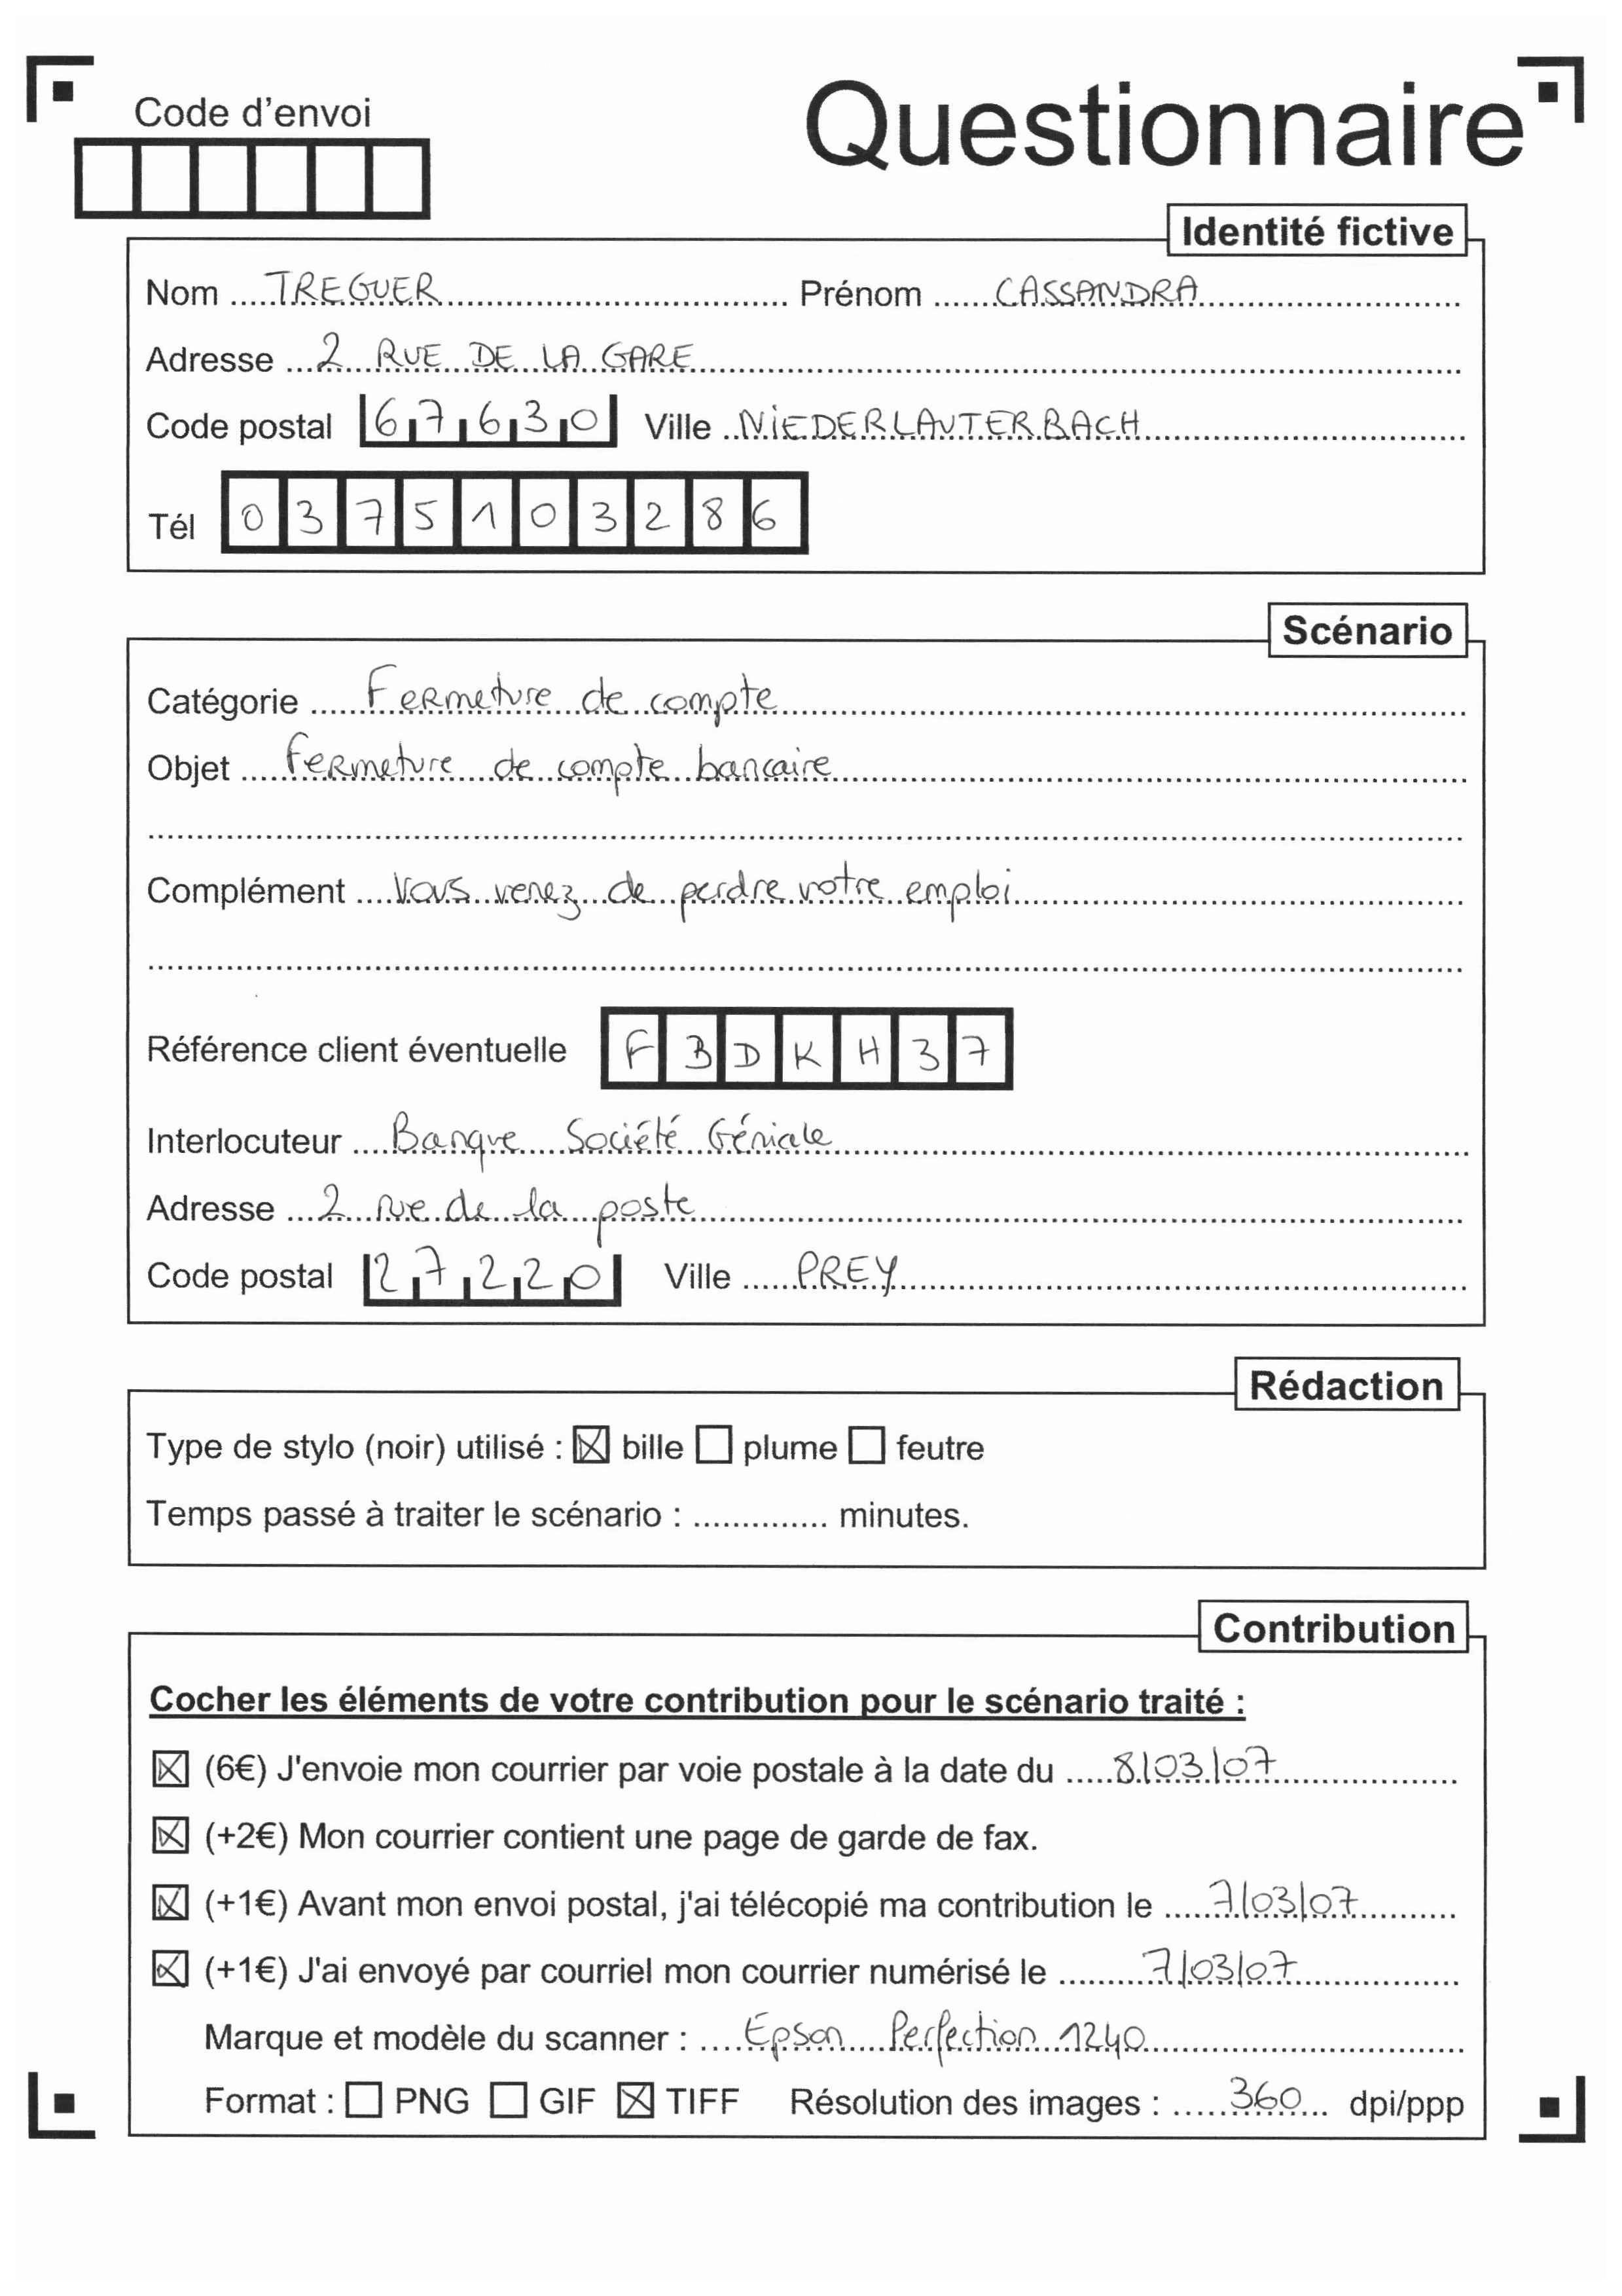 Code d'envoi
Questionnaire
Identité fictive
Nom TREGUER Prénom CASSANDRA
Adresse 2 RUE DE LA GARE
Code postal 67630 Ville NiEDERLAUTERBACH
Tél 0375103286
Scénario
Catégorie Fermeture de compte
Objet Fermeture de compte bancaire
Complément Vous venez de perdre votre emploi
Référence client éventuelle FBDKH37
Interlocuteur Banque Société Géniale
Adresse 2 rue de la poste
Code postal 27220 Ville PREY
Rédaction
Type de stylo (noir) utilisé : ☒ bille ☐ plume ☐ feutre
Temps passé à traiter le scénario : .............. minutes.
Contribution
Cocher les éléments de votre contribution pour le scénario traité :
☒ (6€) J'envoie mon courrier par voie postale à la date du 8/03/07
☒ (+2€) Mon courrier contient une page de garde de fax.
☒ (+1€) Avant mon envoi postal, j'ai télécopié ma contribution le 7/03/07
☒ (+1€) J'ai envoyé par courriel mon courrier numérisé le 7/03/07
Marque et modèle du scanner : Epson Perfection 1240
Format : ☐ PNG ☐ GIF ☒ TIFF Résolution des images : 360 dpi/ppp